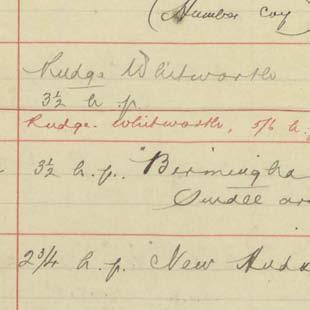 (Humber Coy)
Rudge Whitworth
3½ h. p.
Rudge. Whitworth, 5/6 h.
3½ h. p. "Bermingha
Small ar
2¾ h. p. New Huds